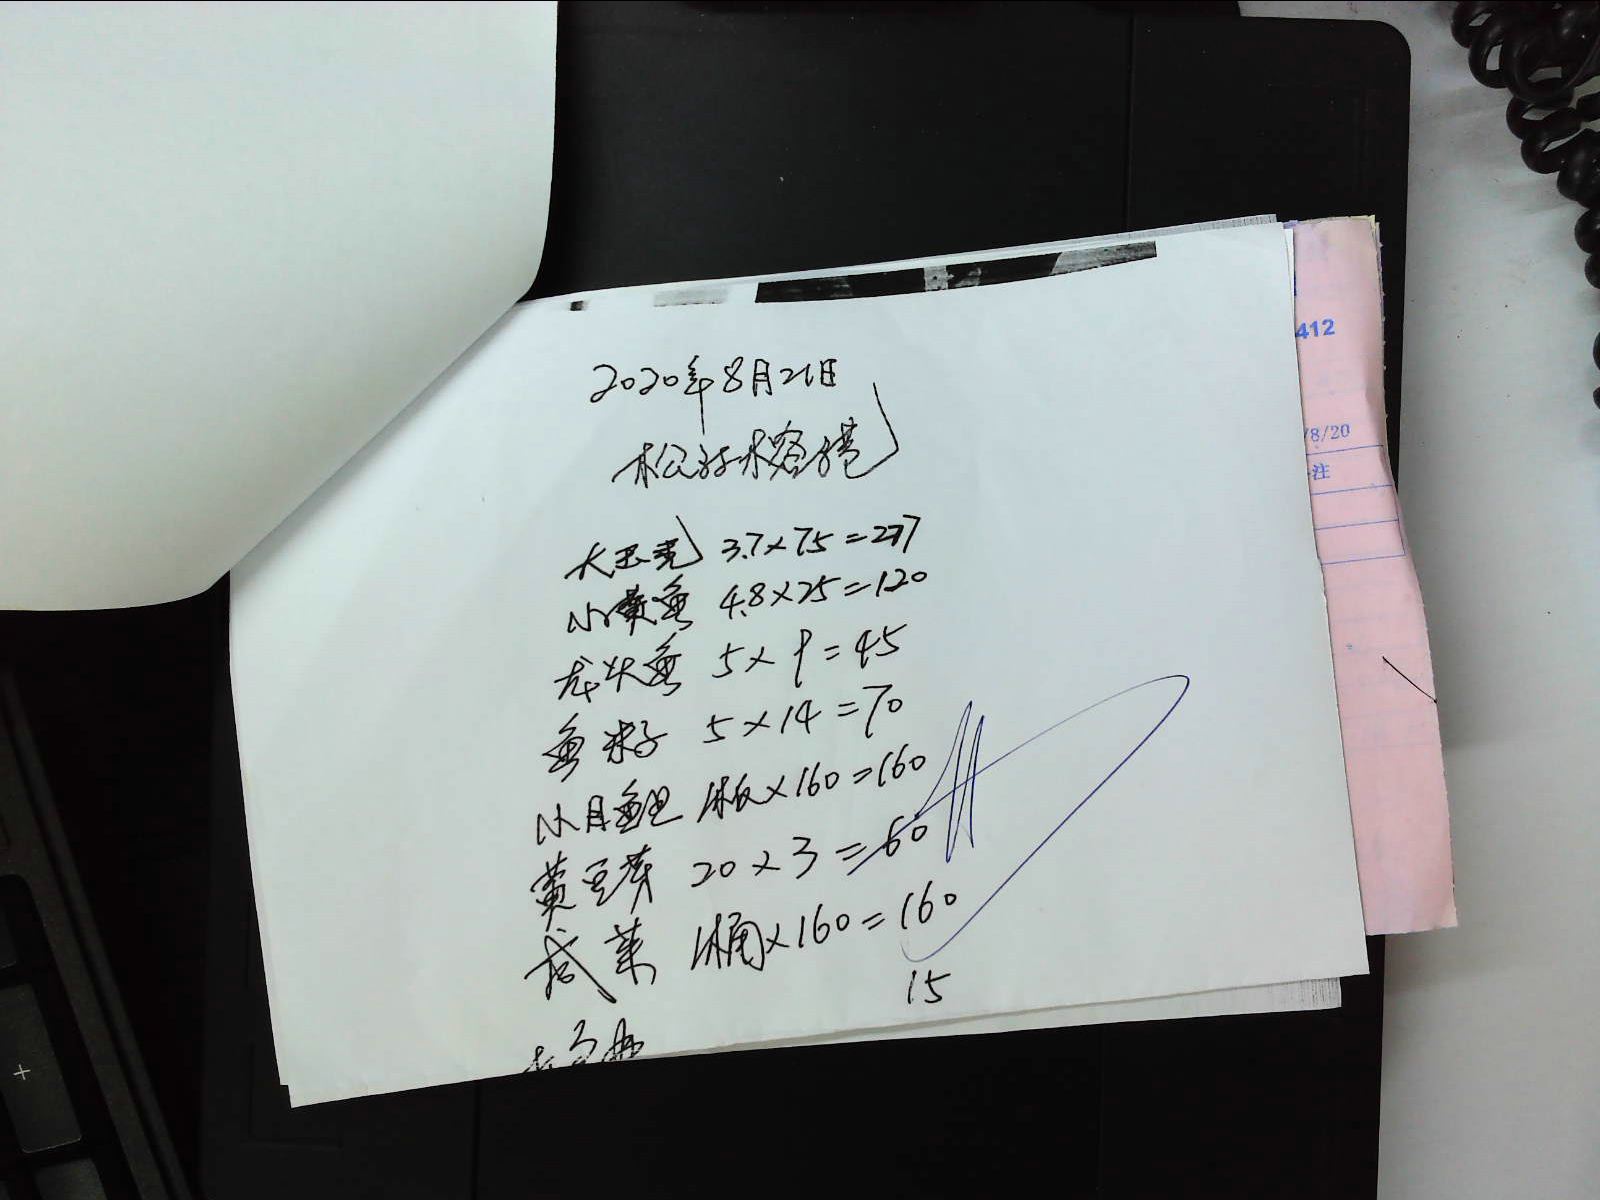 2020年8月21日
松
大玉壳 3.7×75=277
小黄鱼 4.8×25=120
龙头鱼 5×9=45
鱼籽 5×14=70
小月鲳 1板×160=160
黄豆芽 20×3=60
咸菜 1桶×160=160
15
412
/8/20
注
+